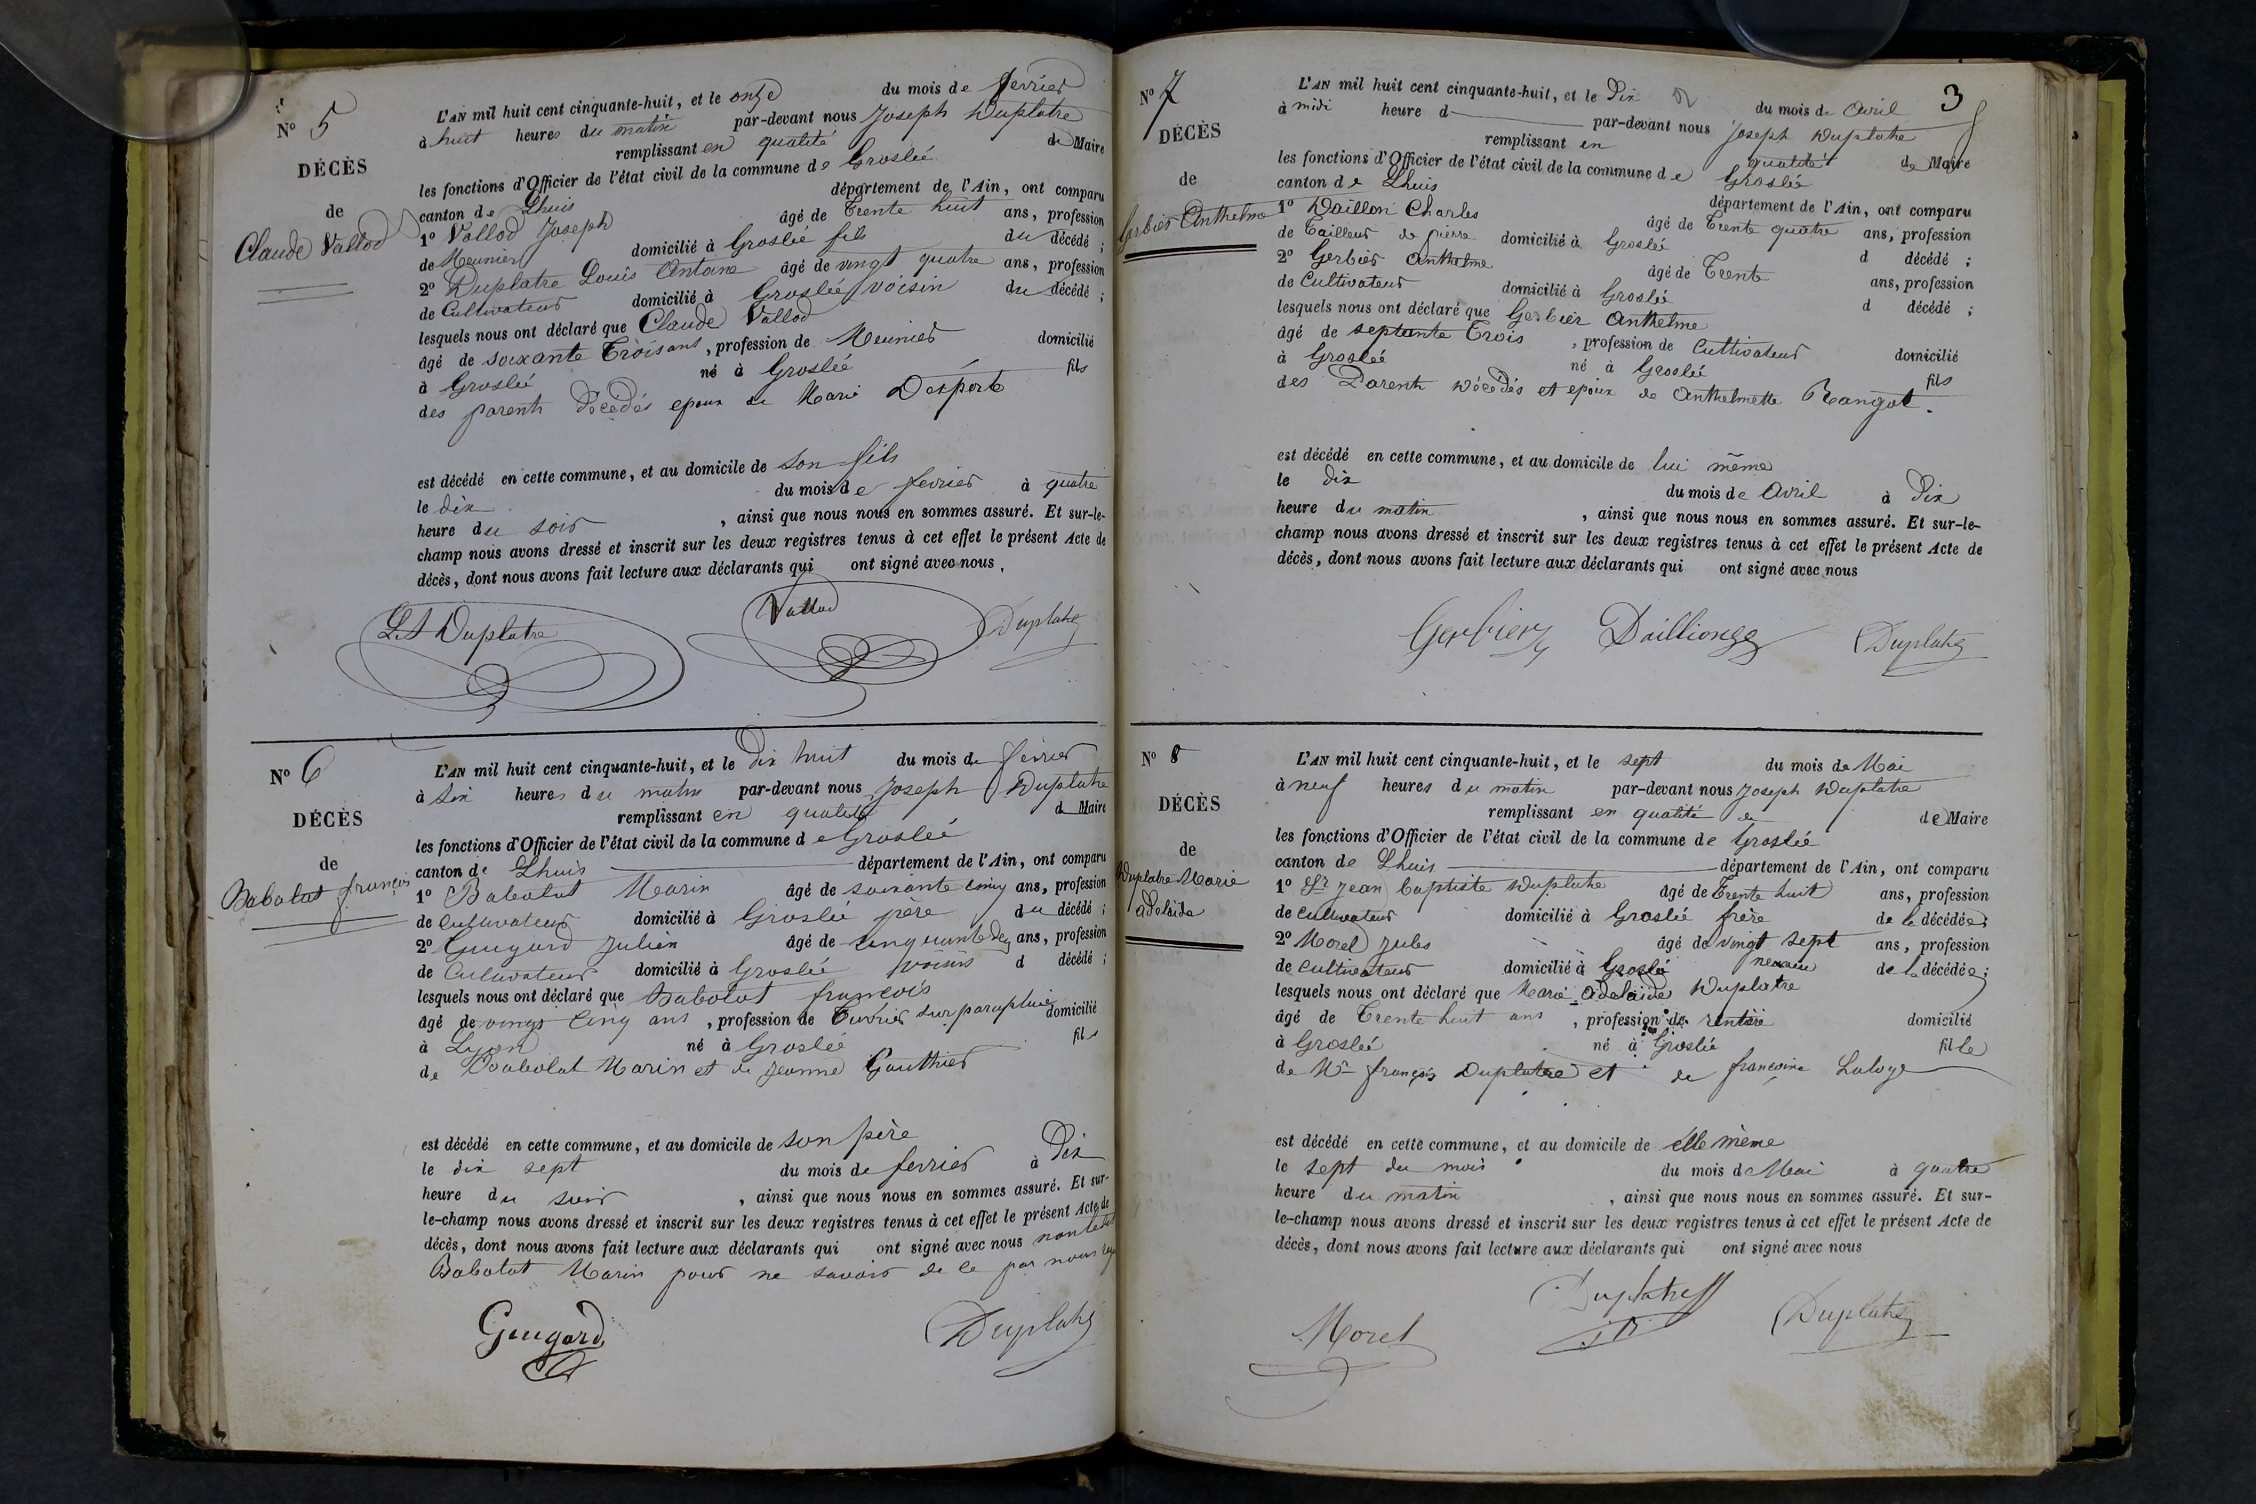 N° 5
DÉCÈS
de
Claude Vallod
L'AN mil huit cent cinquante-huit, et le onze du mois de février
à huit heures du matin par-devant nous Joseph Duplatre
remplissant en qualité de Maire
les fonctions d'Officier de l'état civil de la commune de Groslée
canton de Lhuis département de l'Ain, ont comparu
1° Vallod Joseph âgé de Trente huit ans, profession
de Meunier domicilié à Groslée fils du décédé ;
2° Duplatre Louis Antoine âgé de vingt quatre ans, profession
de Cultivateur domicilié à Groslée voisin du décédé ;
lesquels nous ont déclaré que Claude Vallod
âgé de soixante Trois ans, profession de Meunier domicilié
à Groslée né à Groslée fils
des parents décédés epoux de Marie Desporte
est décédé en cette commune, et au domicile de son fils
le dix du mois de fevrier à quatre
heure du soir, ainsi que nous nous en sommes assuré. Et sur-le-
champ nous avons dressé et inscrit sur les deux registres tenus à cet effet le présent Acte de
décès, dont nous avons fait lecture aux déclarants qui ont signé avec nous.
L.A Duplatre Vallod Duplatre
N° 6
DÉCÈS
de
Babolat françois
L'AN mil huit cent cinquante-huit, et le Dix huit du mois de février
à six heures du matin par-devant nous Joseph Duplatre
remplissant en qualité d Maire
les fonctions d'Officier de l'état civil de la commune de Groslée
canton de Lhuis département de l'Ain, ont comparu
1° Babolat Marin âgé de soixante cinq ans, profession
de cultivateur domicilié à Groslée père du décédé ;
2° Guigard Julien âgé de cinquante ans, profession
de Cultivateur domicilié à Groslée voisin d décédé ;
lesquels nous ont déclaré que Babolat françois
âgé de vingt cinq ans, profession de Ouvrier sur parapluie domicilié
à Lyon né à Groslée fils
de Babolat Marin et de Jeanne Gauthier
est décédé en cette commune, et au domicile de son père
le dix sept du mois de fevrier à Dix
heure du soir, ainsi que nous nous en sommes assuré. Et sur-
le-champ nous avons dressé et inscrit sur les deux registres tenus à cet effet le présent Acte de
décès, dont nous avons fait lecture aux déclarants qui ont signé avec nous
Babolat Marin pour ne savoir de ce par nous
Guigard Duplatre
3
N° 7
DÉCÈS
de
Gerbier Anthelme
L'AN mil huit cent cinquante-huit, et le Dix du mois de Avril
à midi heure d par-devant nous Joseph Duplatre
remplissant en qualité de Maire
les fonctions d'Officier de l'état civil de la commune de Groslée
canton de Lhuis département de l'Ain, ont comparu
1° Daillon Charles âgé de Trente quatre ans, profession
de Tailleur de pierre domicilié à Groslée d décédé ;
2° Gerbier Anthelme âgé de Trente ans, profession
de Cultivateur domicilié à Groslée d décédé ;
lesquels nous ont déclaré que Gerbier Anthelme
âgé de septante Trois, profession de Cultivateur domicilié
à Groslée né à Groslée fils
des Parents décédés et epoux de Anthelmette Rangot.
est décédé en cette commune, et au domicile de lui même
le dix du mois de Avril à Dix
heure du matin, ainsi que nous nous en sommes assuré. Et sur-le-
champ nous avons dressé et inscrit sur les deux registres tenus à cet effet le présent Acte de
décès, dont nous avons fait lecture aux déclarants qui ont signé avec nous
Gerbier Duplatre
N° 8
DÉCÈS
de
Duplatre Marie
adelaide
L'AN mil huit cent cinquante-huit, et le sept du mois de Mai
à neuf heures du matin par-devant nous Joseph Duplatre
remplissant en qualité de de Maire
les fonctions d'Officier de l'état civil de la commune de Groslée
canton de Lhuis département de l'Ain, ont comparu
1° Sr jean baptiste Duplatre âgé de Trente huit ans, profession
de cultivateur domicilié à Groslée frère de la décédée ;
2° Morel Jules âgé de vingt sept ans, profession
de cultivateur domicilié à Groslée neveu de la décédée ;
lesquels nous ont déclaré que Marie adelaide Duplatre
âgé de Trente huit ans, profession de rentière domicilié
à Groslée né à Groslée fille
de Mr françois Duplatre et de françoise Laloge
est décédé en cette commune, et au domicile de elle même
le sept du mois du mois de Mai à quatre
heure du matin, ainsi que nous nous en sommes assuré. Et sur-
le-champ nous avons dressé et inscrit sur les deux registres tenus à cet effet le présent Acte de
décès, dont nous avons fait lecture aux déclarants qui ont signé avec nous
Morel Duplatre Duplatre